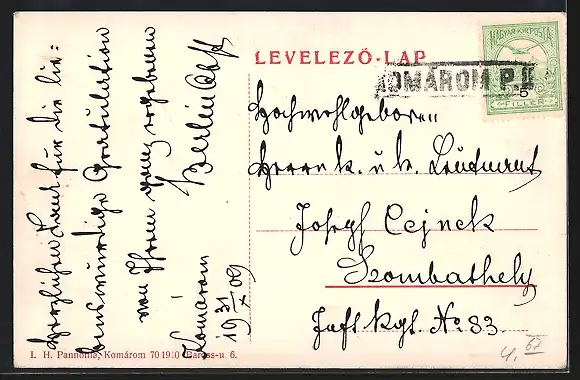 LEVELEZŐ-LAP
MAGYAR KIR. POSTA
5
FILLER
KOMÁROM P.U.
Hochwohlgeboren
Herrn k. u. k. Leutnant
Josef Cejnek
Szombathely
Inft Rgt. No 83.
Herzlichen Dank für die lie=
benswürdige Gratulation
von Ihrem ganz ergebenen
Komarom
19 31/X 09
I. H. Pannonia, Komárom 70 1910 Baross-u. 6.